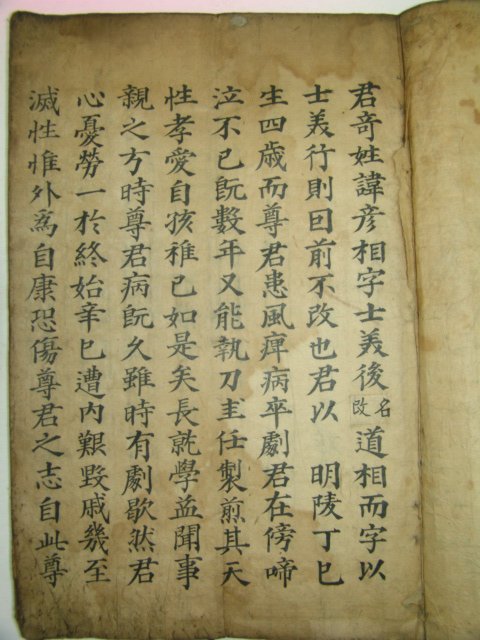 君奇姓諱彦相字士美後改名道相而字以
士義行則因前不改也君以 明陵丁巳
生四歲而尊君患風痺病卒劇君在傍啼
泣不已旣數年又能執刀圭任製煎其天
性孝愛自孩稚已如是矣長就學益聞事
親之方時尊君病旣久雖時有劇歇然君
心憂勞一於終始辛巳遭內艱毀戚幾至
滅性惟外爲自康恐傷尊君之志自此尊